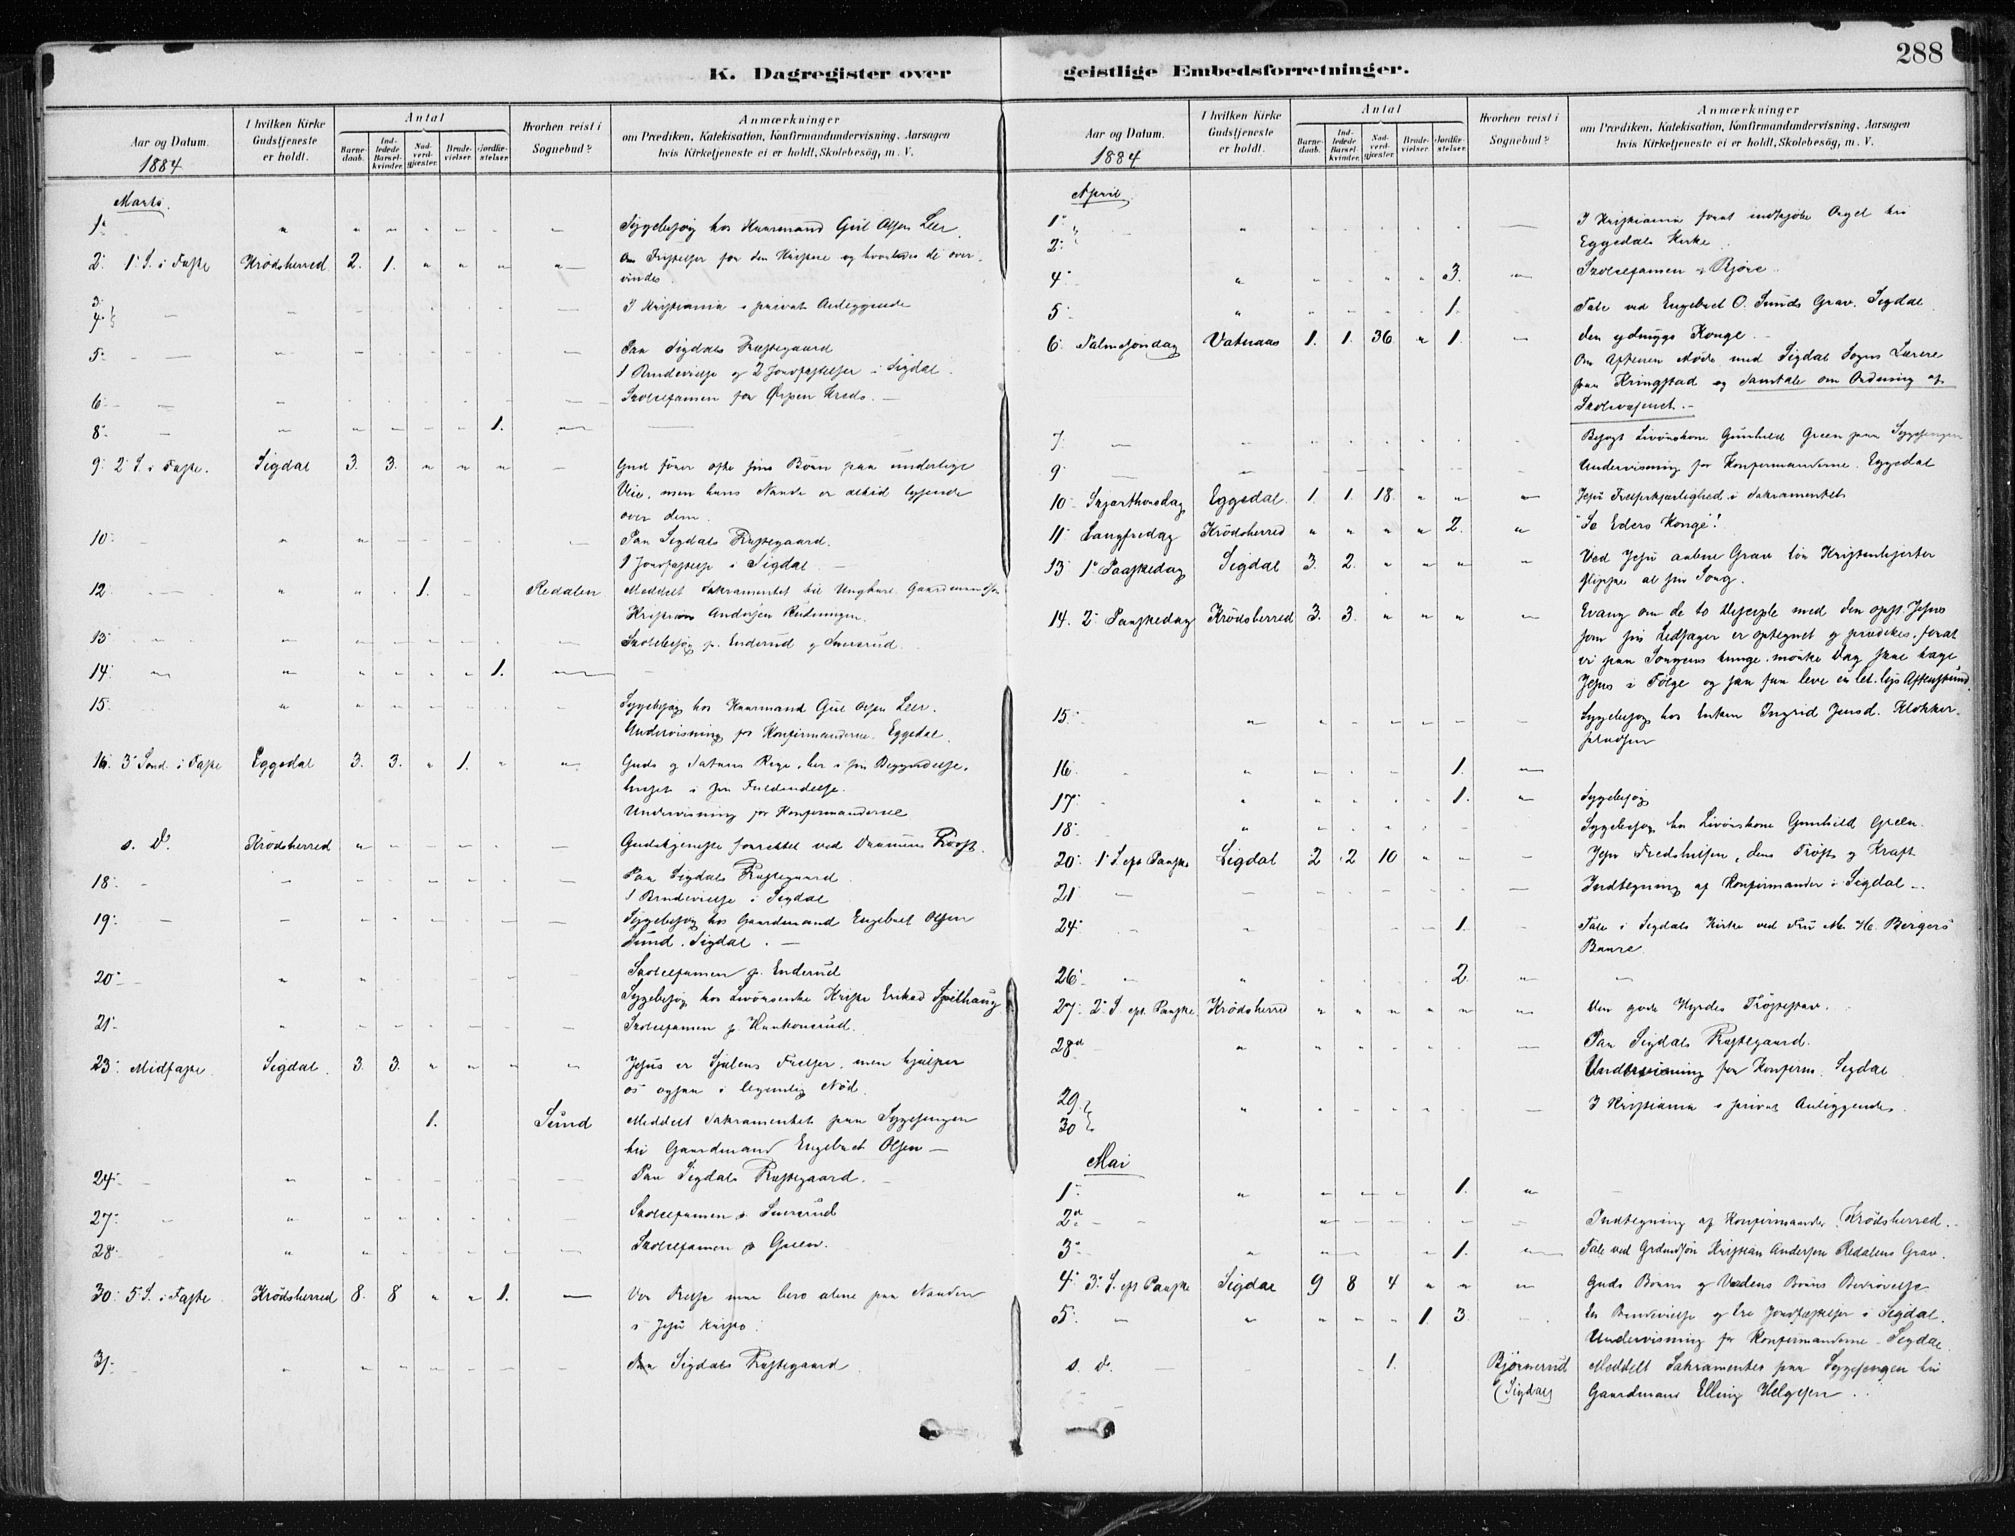 288
K. Dagregister over geistlige Embedsforretninger.
Aar og Datum.
1884
I hvilken Kirke Gudstjeneste er holdt.
Antal
Barnedaab.
Indledede Barselkvinder.
Nadverdgjester.
Brudevielser.
Jordfæstelser.
Hvorhen reist i Sognebud?
Anmærkninger
om Prædiken, Katekisation, Konfirmandundervisning, Aarsagen
hvis Kirketjeneste ei er holdt, Skolebesøg, m. V.
Marts.
1. Sygebesøg hos Huusmand Gul Olsen Leer.
2. 1. S. i Faste Krødsherred 2. 1. Om Fristelser for den Kristne og hvorledes de over-
vindes.
3.
4. I Kristiania i privat Anliggende
5. Paa Sigdals Præstegaard
1 Brudevielse og 2 Jordfæstelser i Sigdal.
6. Skoleexamen for Ørpen Kreds.
8. 1.
9. 2. S. i Faste. Sigdal 3. 3. Gud fører ofte sine Børn paa underlige
Veie, men hans Naade er altid lysende
over dem.
10. Paa Sigdals Præstegaard.
1 Jordfæstelse i Sigdal.
12. 1. Redalen Meddelt Sakramentet til Ungkarl, Gaardmandssøn
Kristian Andersen
13. Skolebesøg p. Enderud og
14. 1.
15. Sygebesøg hos Huusmand Gul Olsen Leer.
Undervisning for Konfirmanderne. Eggedal.
16. 3. Sønd. i Faste Eggedal 3. 3. 1. Guds og Satans Rige, her i sin Begyndelse,
hisset i sin Fuldendelse.
Undervisning for Konfirmanderne
s. D. Krødsherred Gudstjeneste forrettet ved
18. Paa Sigdals Præstegaard.
1 Brudevielse i Sigdal
19. Sygebesøg hos Gaardmand Engebret Olsen
Sund. Sigdal.
20. Skoleexamen p. Enderud
Sygebesøg hos Livørsenke
21. Skoleexamen p. Haakonsrud.
23. Midfaste. Sigdal. 3. 3. Jesus er Sjælens Frelser, men hjælper
os ogsaa i legemlig Nød.
1. Sund Meddelt Sakramentet paa Sygesengen
til Gaardmand Engebret Olsen
24. Paa Sigdals Præstegaard.
27. Skoleexamen p.
28. Skoleexamen p. Green.
30. 5 S. i Faste Krødsherred 8. 8 1. Vor Frelse maa bero alene paa Naaden
i Jesu Kristo.
31. Paa Sigdals Præstegaard.
Aar og Datum.
1884
I hvilken Kirke Gudstjeneste er holdt.
Antal
Barnedaab.
Indledede Barselkvinder.
Nadverdgjester.
Brudevielser.
Jordfæstelser.
Hvorhen reist i Sognebud?
Anmærkninger
om Prædiken, Katekisation, Konfirmandundervisning, Aarsagen
hvis Kirketjeneste ei er holdt, Skolebesøg, m. V.
April.
1.
2. I Kristiania forat indkjøbe Orgel til
Eggedals Kirke.
4. 3. Skoleexamen p. Bjøre.
5. 1. Tale ved Engebret O. Sunds Grav. Sigdal
6. Palmesøndag Vatnaas 1. 1. 36 1. Den ydmyge Konge.
Om Aftenen Møde med Sigdal Sogns Lærere
paa Kringstad og Samtale om Ordning af
Skolevæsenet.
7. Besøgt Livørskone Gunhild Green paa Sygesengen
9. Undervisning for Konfirmanderne. Eggedal
10. Skjærthorsdag Eggedal. 1. 1. 18. Jesu Frelserkjærlighed i Sakramentet
11. Langfredag Krødsherred 2. "Se Eders Konge"!
13. 1. Paaskedag Sigdal 3. 2. Ved Jesu aabne Grav kan Kristenhjertet
slippe al sin Sorg.
14. 2. Paaskedag Krødsherred 3. 3. Evang om de to Disciple med den opst. Jesus
som sin Ledsager er optegnet og prædikes, forat
vi paa Sorgens tunge, mørke Dag skal tage
Jesus i Følge og saa faa leve en let, lys Aftenstund.
15. Sygebesøg hos Enken Ingrid Jensd. Klokker-
pladsen
16. 1.
17. 1. Sygebesøg
18. Sygebesøg hos Livørskone Gunhild Green.
20. 1. S. eft. Paaske Sigdal 2 2 10 Jesu Fredshilsen, dens Trøst og Kraft
21 Indtegning af Konfirmander i Sigdal
24. 1. Tale i Sigdals Kirke ved Fru M. H. Bergers
Baare.
26. 2
27. 2. S. eft. Paaske Krødsherred Den gode Hyrdes Trøstestav.
28. Paa Sigdals Præstegaard.
Undervisning for Konfirm. Sigdal
29.
30 I Kristiania i privat Anliggende.
Mai
1. 1.
2. Indtegning af Konfirmander. Krødsherred.
3. 1. Tale ved Grdmdsøn Kristian Andersen Redalens Grav.
4. 3. S. eft. Paaske Sigdal 9 8 4 Guds Børns og Verdens Børns Bedrøvelse
5. 1. 3. En Brudevielse og tre Jordfæstelser i Sigdal.
Undervisning for Konfirmanderne. Sigdal.
s. D. 1. Bjørnerud Meddelt Sakramentet paa Sygesengen til
(Sigdal) Gaardmand Elling Helgesen.